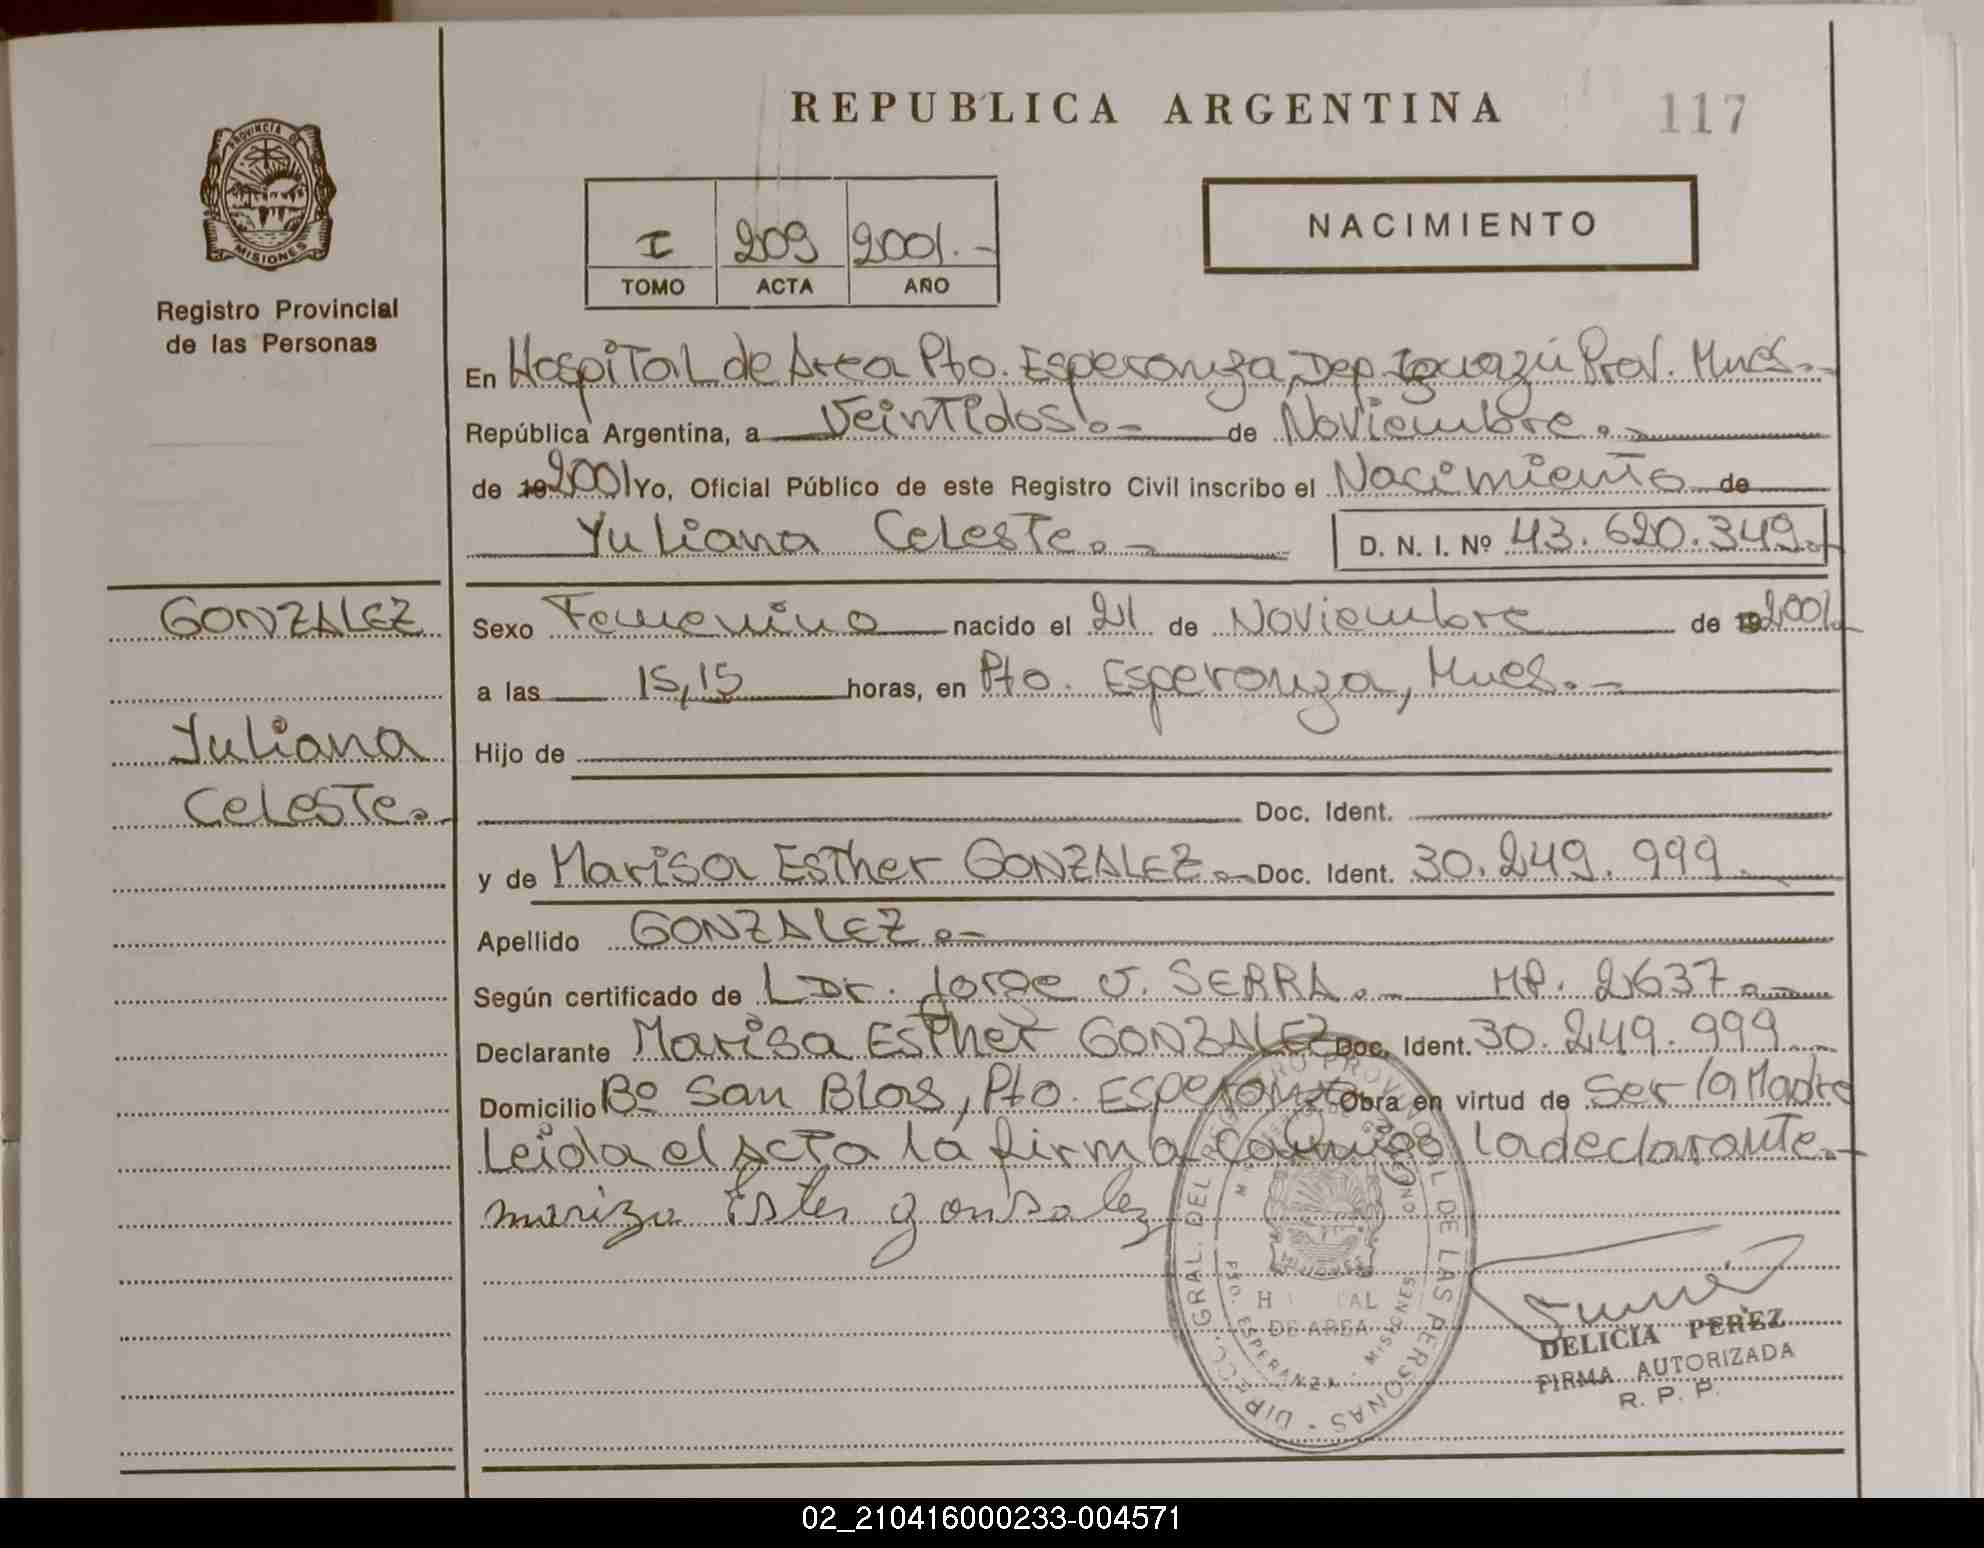 REPUBLICA ARGENTINA
117
PROVINCIA DE MISIONES
Registro Provincial
de las Personas
I 209 2001.-
TOMO ACTA AÑO
NACIMIENTO
En Hospital de Area Pto. Esperanza, Dep. Iguazú Prov. Mnes.-
República Argentina, a Veintidos.- de Noviembre.-
de 19 2001 Yo, Oficial Público de este Registro Civil inscribo el Nacimiento de
Yuliana Celeste.- D. N. I. Nº 43.620.349.-
GONZALEZ
Yuliana
Celeste.-
Sexo Femenino nacido el 21 de Noviembre de 19 2001.-
a las 15,15 horas, en Pto. Esperanza, Mnes.-
Hijo de
Doc. Ident.
y de Marisa Esther GONZALEZ.- Doc. Ident. 30.249.999.-
Apellido GONZALEZ.-
Según certificado de L Dr. Jorge J. SERRA.- MP. 2637.-
Declarante Marisa Esther GONZALEZ Doc. Ident. 30.249.999.-
Domicilio Bº San Blas, Pto. Esperanza Obra en virtud de Ser la Madre
Leida el Acta la firma conmigo la declarante.-
mariza Ester gonsalez
DIRECC. GRAL. DEL REGISTRO PROVINCIAL DE LAS PERSONAS
H AL
DE AREA
PTO. ESPERANZA - MISIONES
DELICIA PEREZ
FIRMA AUTORIZADA
R. P. P.
02_210416000233-004571